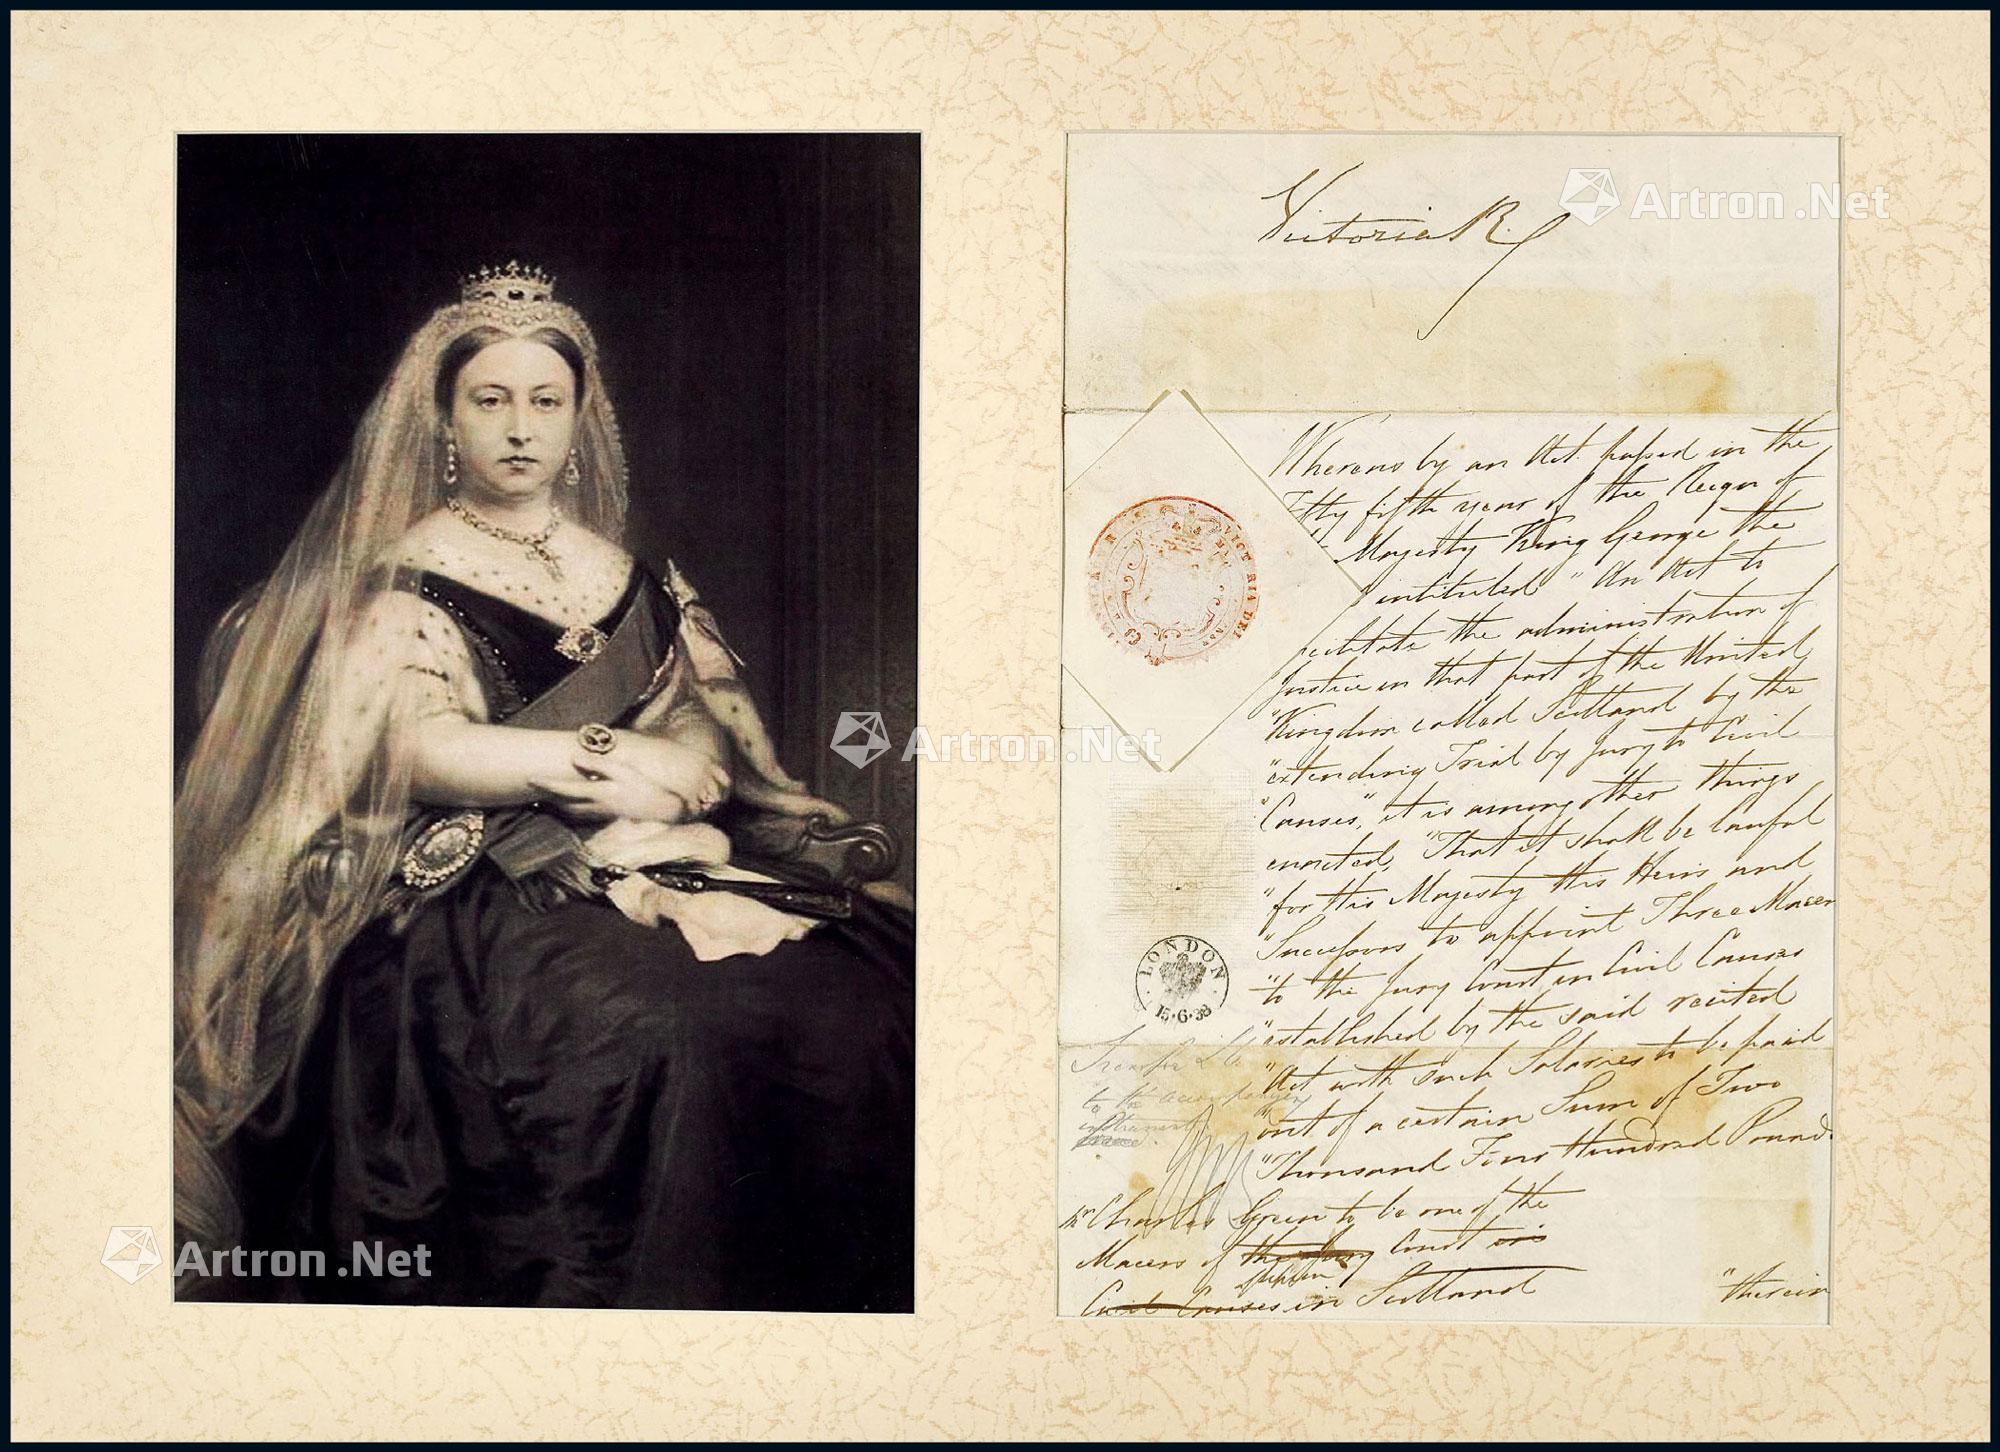 Victoria R
Whereas by an Act passed in the
Fifty fifth year of the Reign of
Majesty King George the
intituled "An Act to
facilitate the administration of
Justice in that part of the United
"Kingdom called Scotland by the
"extending Trial by Jury to Civil
"Causes," it is among other things
enacted, "That it shall be lawful
"for His Majesty His Heirs and
"Successors to appoint Three Macers
"to the Jury Court in Civil Causes
"established by the said recited
"Act with such Salaries to be paid
"out of a certain Sum of Two
"Thousand Five Hundred Pounds
"therein
VICTORIA DEI
LONDON
15·6·38
to the accompanying
instrument
Mr Charles Green to be one of the
Macers of the Jury Court in
Civil Causes in Scotland
Artron.Net
Artron.Net
Artron.Net